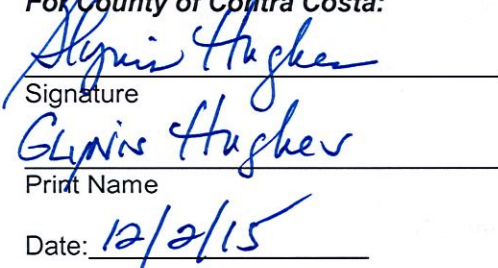 For County of Contra Costa:
Glynis Hughes
Signature
Glynis Hughes
Print Name
Date: 12/2/15